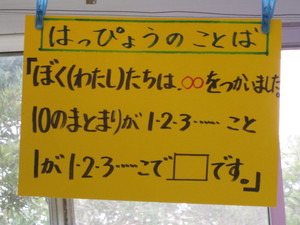 はっぴょうのことば
「ぼく(わたし)たちは、○○をつかいました。
10のまとまりが1・2・3……こと
1が1・2・3……こで□です。」